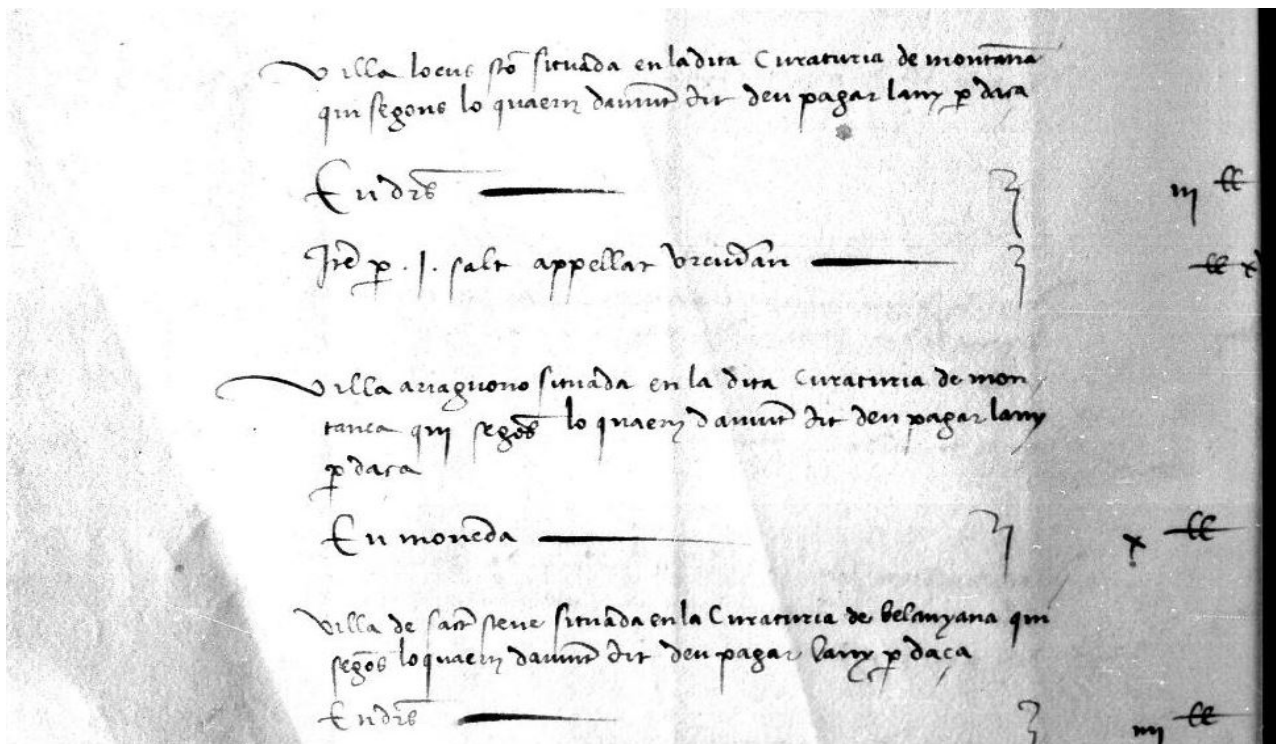 Villa locus sto situada en la dita Curaturia de montana
qui segons lo quaern damunt dit deu pagar lany p daça
En drs iij ll
Ite p .I. salt appellat ll x
Villa ariaguono situada en la dita Curaturia de mon
tanea qui segos lo quaern damunt dit deu pagar lany
p daça
En moneda x ll
Villa de sact steve situada en la Curaturia de belauyana qui
segos lo quaern damunt dit deu pagar lany p daça
En drs iiij ll